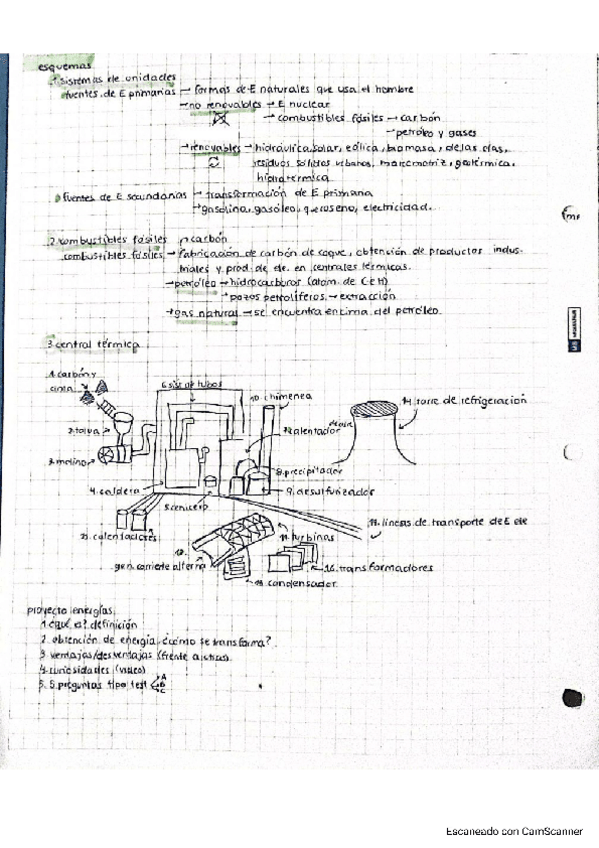 esquemas
1. sistemas de unidades
fuentes de E primarias → formas de E naturales que usa el hombre
→ no renovables → E nuclear
→ combustibles fósiles → carbón
→ petróleo y gases
→ renovables → hidráulica, solar, eólica, biomasa, de las olas,
residuos sólidos urbanos, maremotriz, geotérmica,
hidrotérmica
fuentes de E secundarias → transformación de E primaria
→ gasolina, gasóleo, queroseno, electricidad.
2. combustibles fósiles → carbón
combustibles fósiles → fabricación de carbón de coque, obtención de productos indus-
triales y prod. de ele. en centrales térmicas.
→ petróleo → hidrocarburos (atom. de C e H)
→ pozos petrolíferos → extracción
→ gas natural → se encuentra encima del petróleo.
3. central térmica
1. carbón y
cinta
6. sist. de tubos
10. chimenea
14. torre de refrigeración
2. tolva
7. calentador
de aire
3. molino
8. precipitador
4. caldera
9. desulfurizador
5. cenicero
17. líneas de transporte de E ele
calentadores
11. turbinas
gen. corriente alterna
16. transformadores
condensador
proyecto energías
1. ¿qué es? definición
2. obtención de energía, ¿cómo se transforma?
3. ventajas/desventajas (frente a otras)
4. curiosidades (video)
5. 5 preguntas tipo test A
B
C
Escaneado con CamScanner